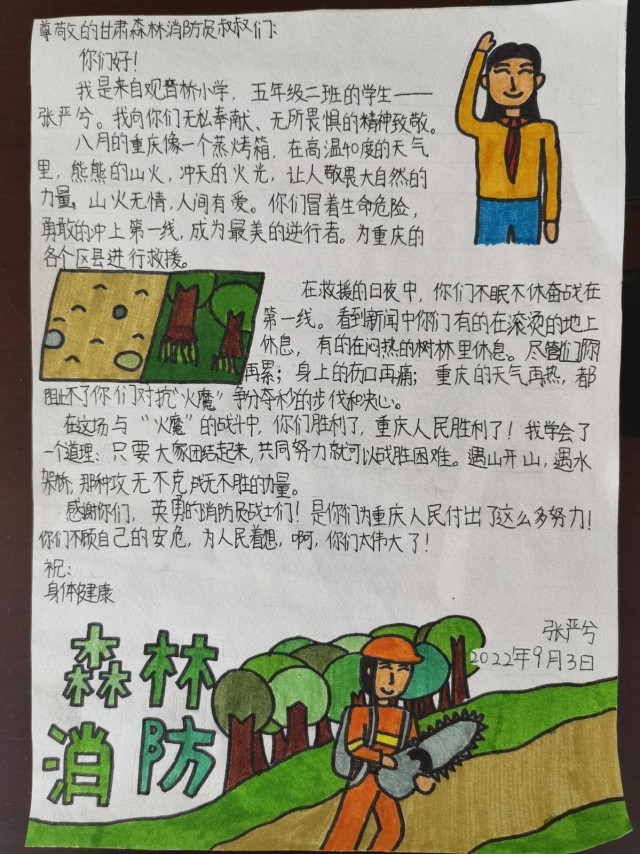 尊敬的甘肃森林消防员叔叔们:
你们好!
我是来自观音桥小学，五年级二班的学生——
张严兮。我向你们无私奉献、无所畏惧的精神致敬。
八月的重庆像一个蒸烤箱，在高温40度的天气
里，熊熊的山火，冲天的火光，让人敬畏大自然的
力量。山火无情，人间有爱。你们冒着生命危险，
勇敢的冲上第一线，成为最美的逆行者。为重庆的
各个区县进行救援。
在救援的日夜中，你们不眠不休奋战在
第一线。看到新闻中你们有的在滚烫的地上
休息，有的在闷热的树林里休息。尽管你们
再累；身上的伤口再痛；重庆的天气再热，都
阻止不了你们对抗“火魔”争分夺秒的步伐和决心。
在这场与“火魔”的战斗中，你们胜利了，重庆人民胜利了！我学会了
一个道理：只要大家团结起来，共同努力就可以战胜困难。遇山开山，遇水
架桥，那种攻无不克战无不胜的力量。
感谢你们，英勇的消防员战士们！是你们为重庆人民付出了这么多努力！
你们不顾自己的安危，为人民着想，啊，你们太伟大了！
祝：
身体健康
张严兮
2022年9月3日
森林
消防